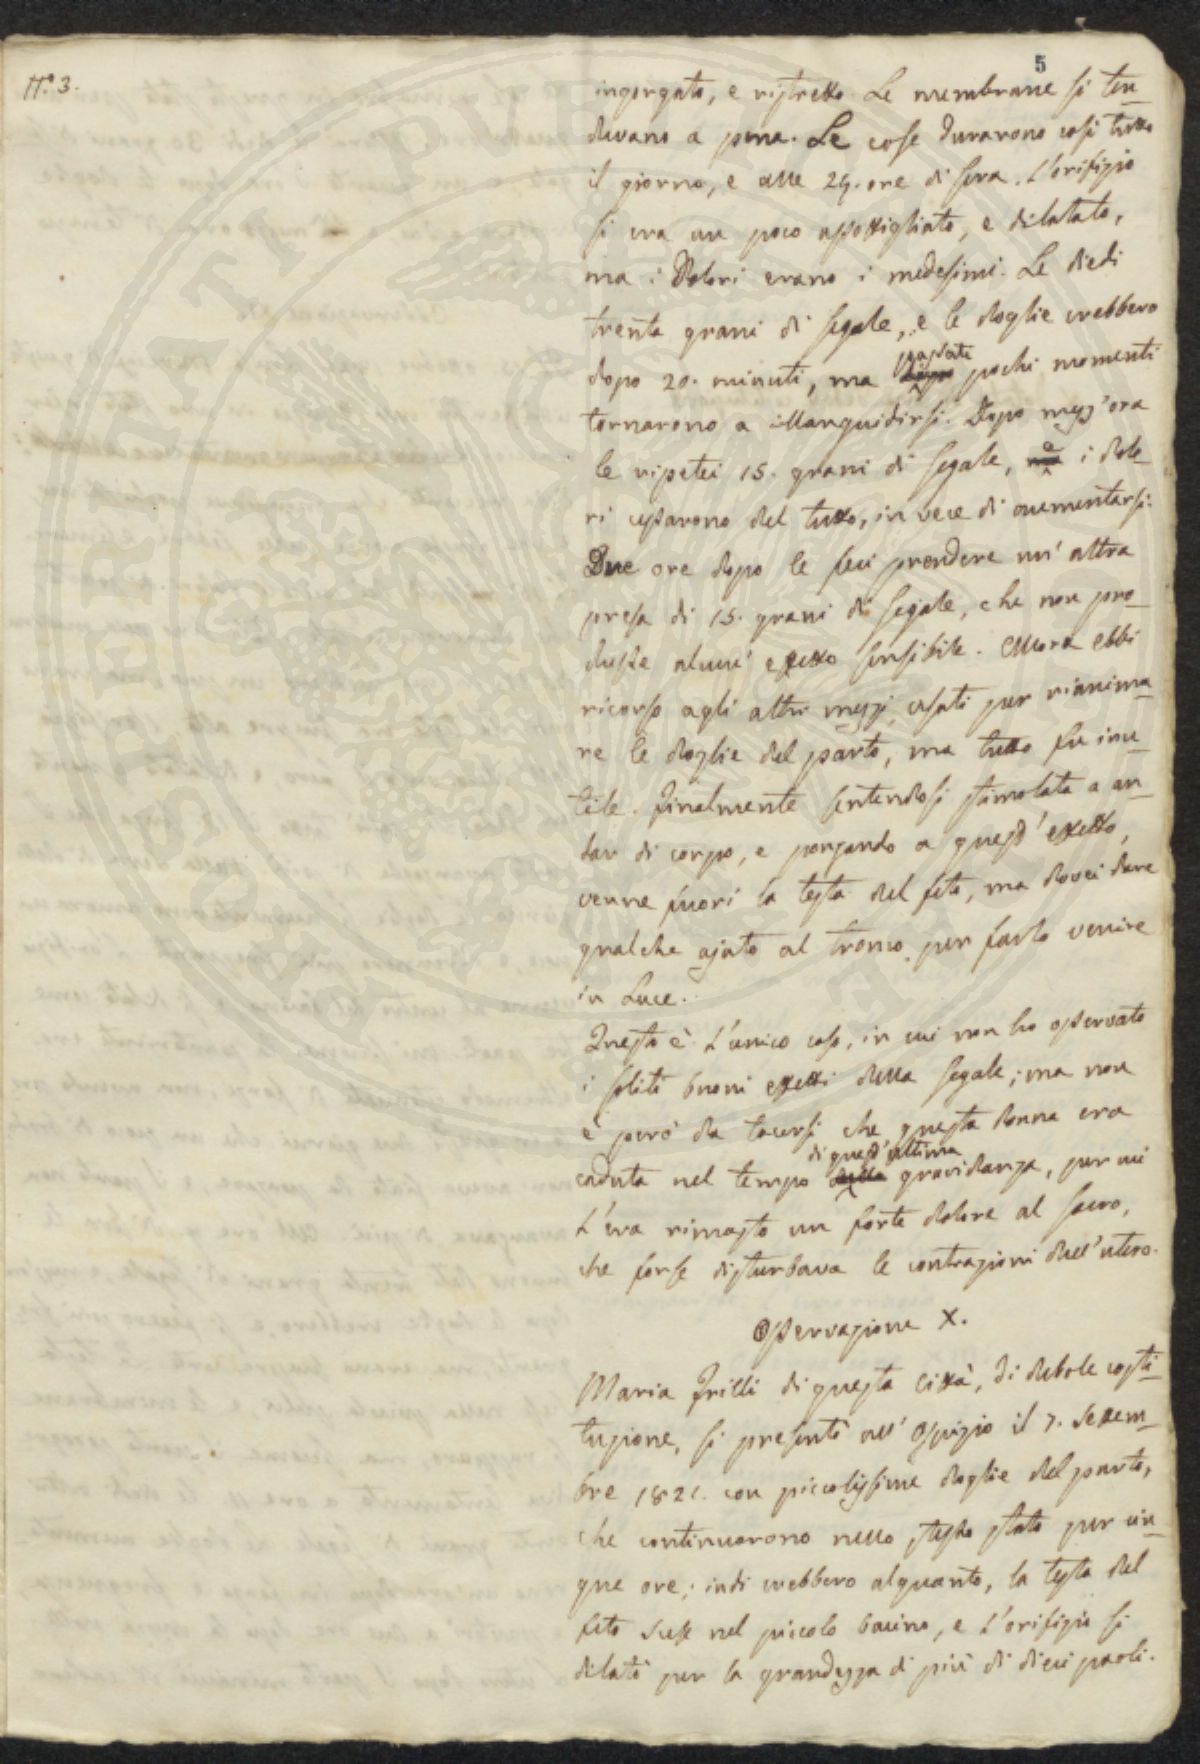 5
N.º 3.
ingorgato, e ristretto. Le membrane si ten-
devano a pena. Le cose durarono così tutto
il giorno, e alle 24. ore di sera. L'orifizio
si era un poco assottigliato, e dilatato,
ma i Dolori erano i medesimi. Le diedi
trenta grani di segale, e le doglie crebbero
dopo 20. minuti, ma passati pochi momenti
tornarono a illanguidirsi. Dopo mezz'ora
le ripetei 15. grani di segale, e i dolo-
ri cessarono del tutto, in vece di aumentarsi.
Due ore dopo le feci prendere un'altra
presa di 15. grani di segale, che non pro-
dusse alcun' effetto sensibile. Allora ebbi
ricorso agli altri mezzi usati per rianima-
re le doglie del parto, ma tutto fu inu-
tile. Finalmente sentendosi stimolata a an-
dar di corpo, e ponzando a quest'effetto,
venne fuori la testa del feto, ma dovei dare
qualche ajuto al tronco per farlo venire
in Luce.
Questo è L'unico caso, in cui non ho osservato
i soliti buoni effetti della segale; ma non
è però da tacersi che questa donna era
caduta nel tempo di quest'ultima gravidanza, per cui
L'era rimasto un forte dolore al sacro,
che forse disturbava le contrazioni dell'utero.
Osservazione X.
Maria Frilli di questa Città, di debole costi-
tuzione, si presentò all'Ospizio il 7. Settem-
bre 1821. con piccolissime doglie del parto,
che continuarono nello stesso stato per cin-
que ore; indi crebbero alquanto, la testa del
feto scese nel piccolo bacino, e L'orifizio si
dilatò per la grandezza di più di dieci paoli.